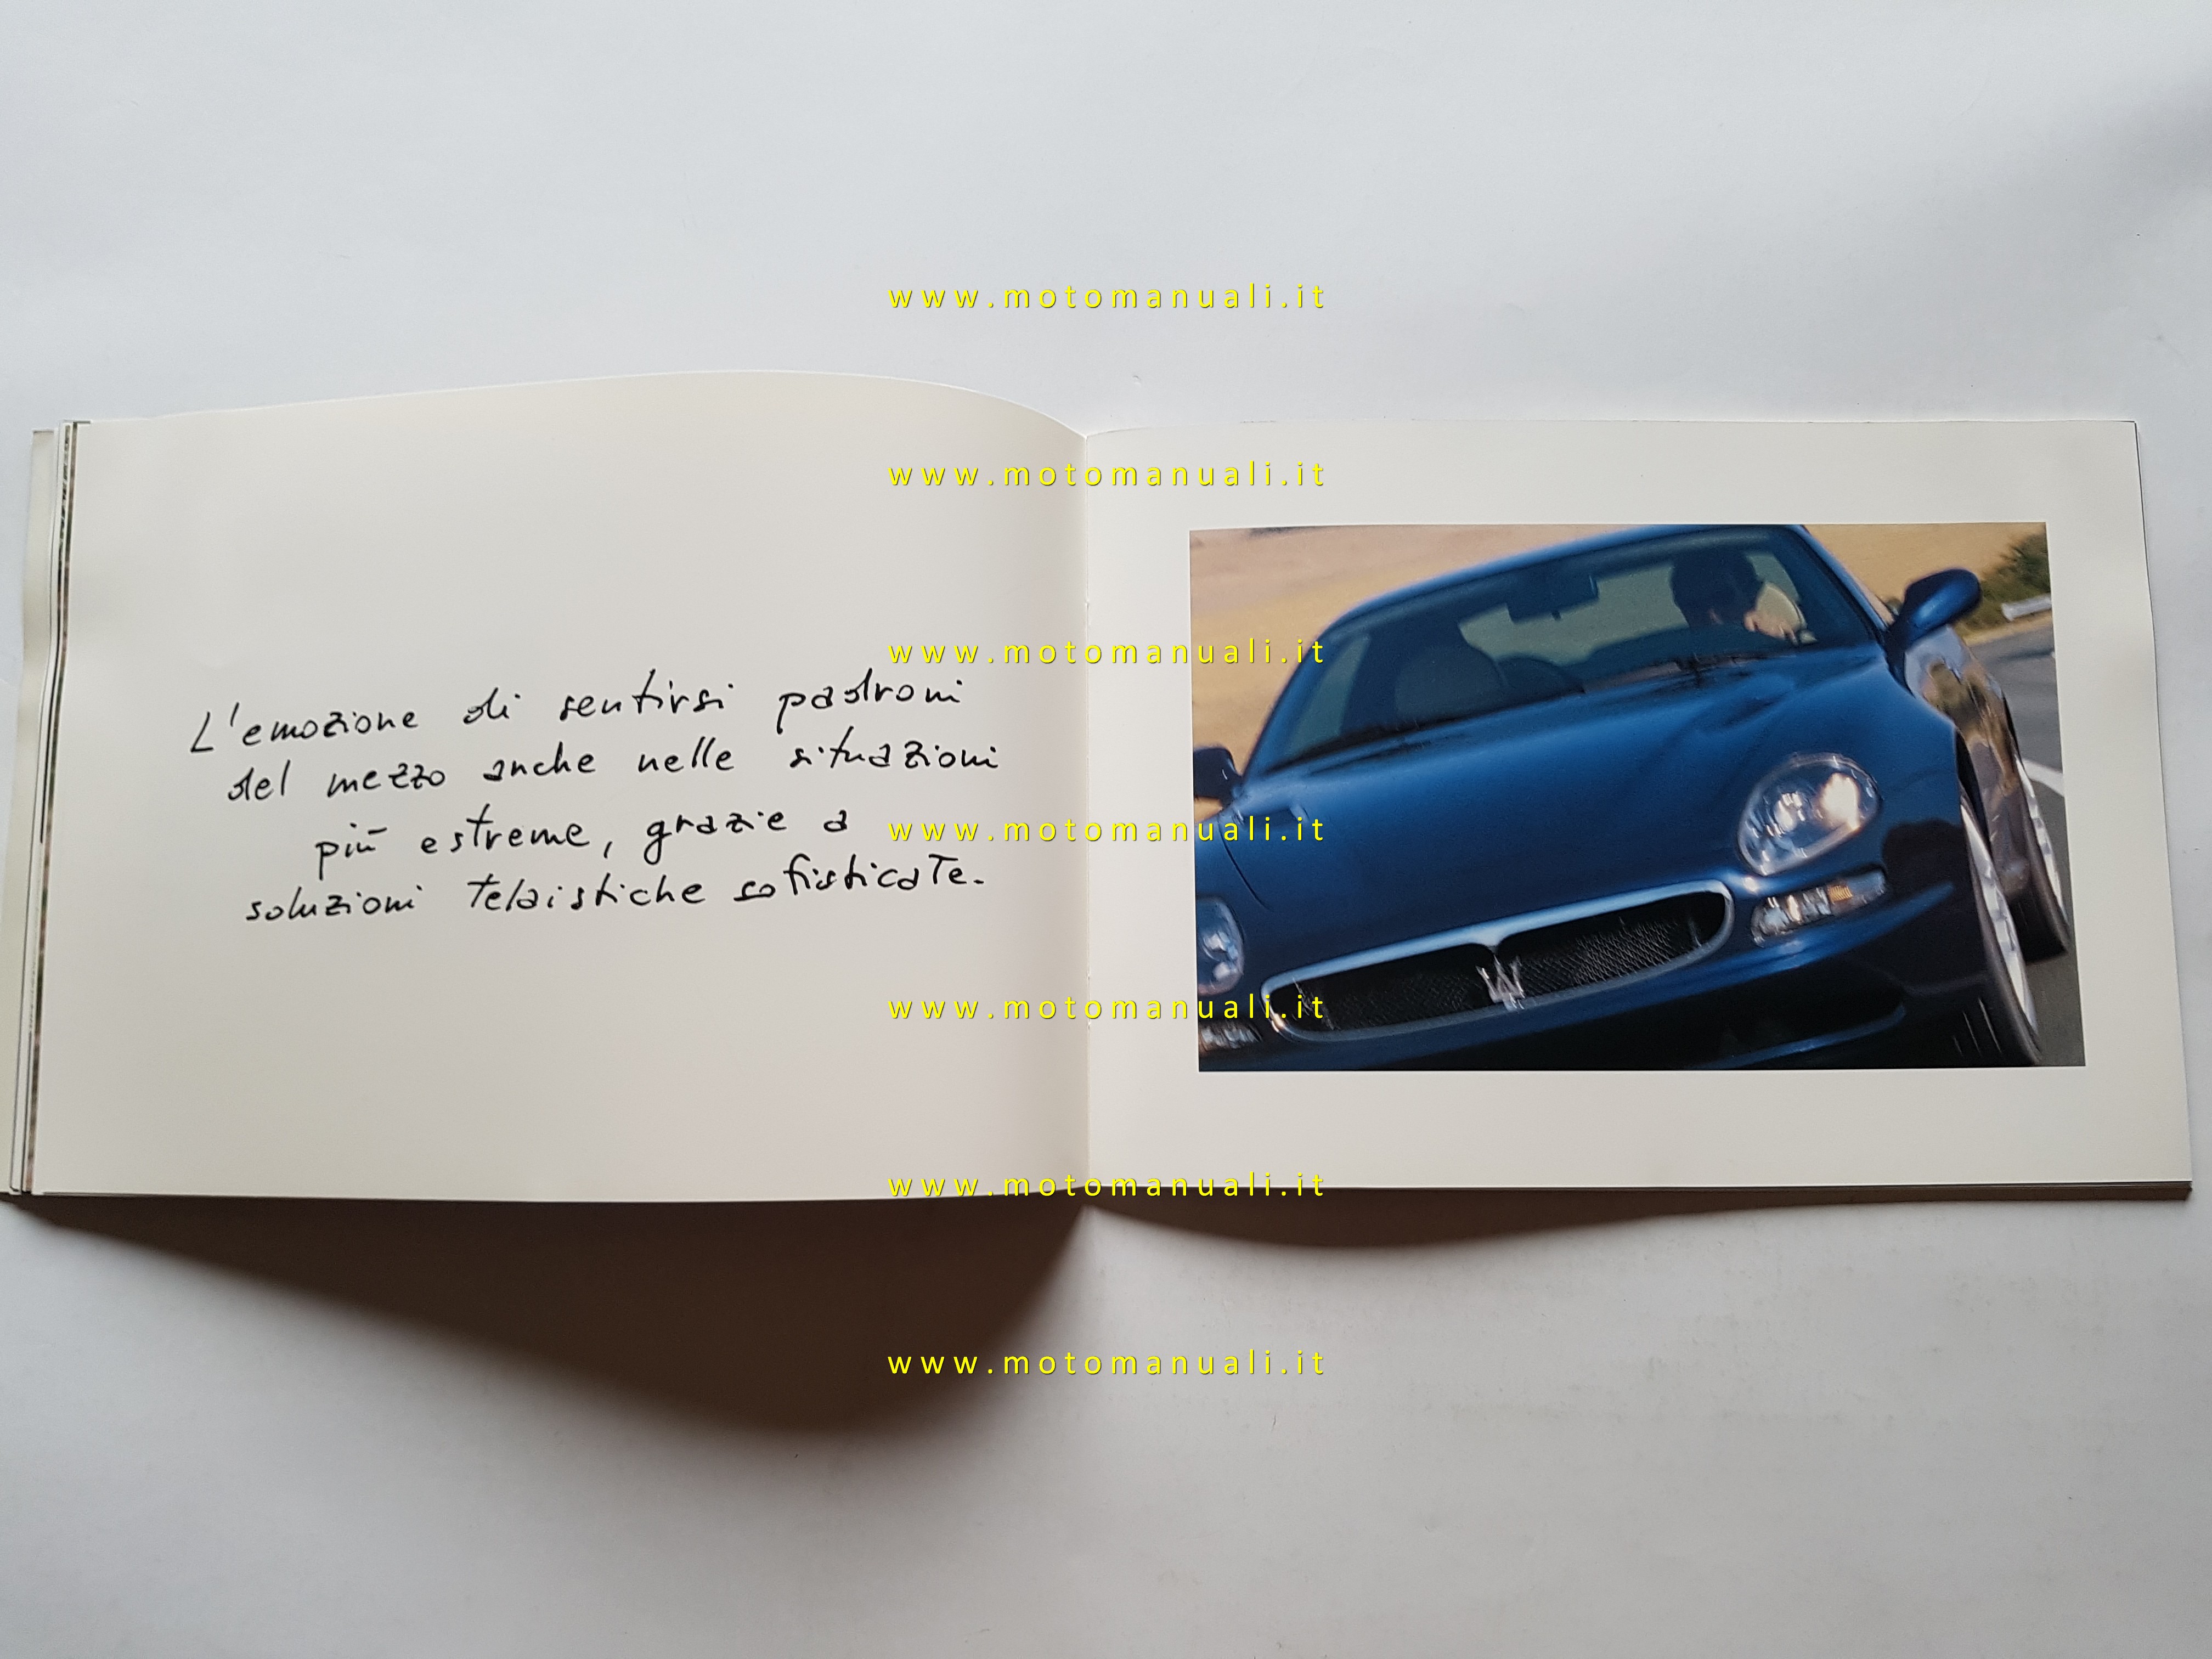 www.motomanuali.it
www.motomanuali.it
www.motomanuali.it
L'emozione di sentirsi padroni
del mezzo anche nelle situazioni
più estreme, grazie a
soluzioni telaistiche sofisticate.
www.motomanuali.it
www.motomanuali.it
www.motomanuali.it
www.motomanuali.it